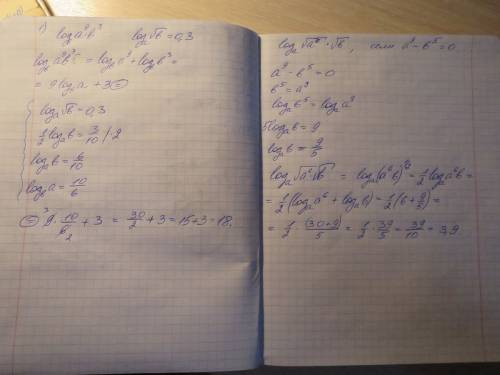 1) log a⁹b³    logₐ√b = 0,3
log_b a⁹b³ = log_b a⁹ + log_b b³ =
= 9 log_b a + 3 =
logₐ√b = 0,3
½ logₐ b = 3/10 | · 2
logₐ b = 6/10
log_b a = 10/6
= 9 · 10/6 + 3 = 30/2 + 3 = 15 + 3 = 18.
logₐ √a⁶ · √b, если a⁹ − b⁵ = 0
a⁹ − b⁵ = 0
b⁵ = a⁹
logₐ b⁵ = logₐ a⁹
5 logₐ b = 9
logₐ b = 9/5
logₐ √a⁶ √b = logₐ (a⁶b)^½ = ½ logₐ a⁶b =
= ½ (logₐ a⁶ + logₐ b) = ½ (6 + 9/5) =
= ½ · (30+9)/5 = ½ · 39/5 = 39/10 = 3,9